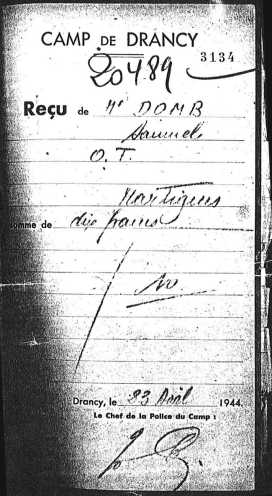 CAMP DE DRANCY
3134
20489
Reçu de Mr DOMB
Samuel
O. T.
Martigues
somme de dix francs
Drancy, le 23 Août 1944.
Le Chef de la Police du Camp :